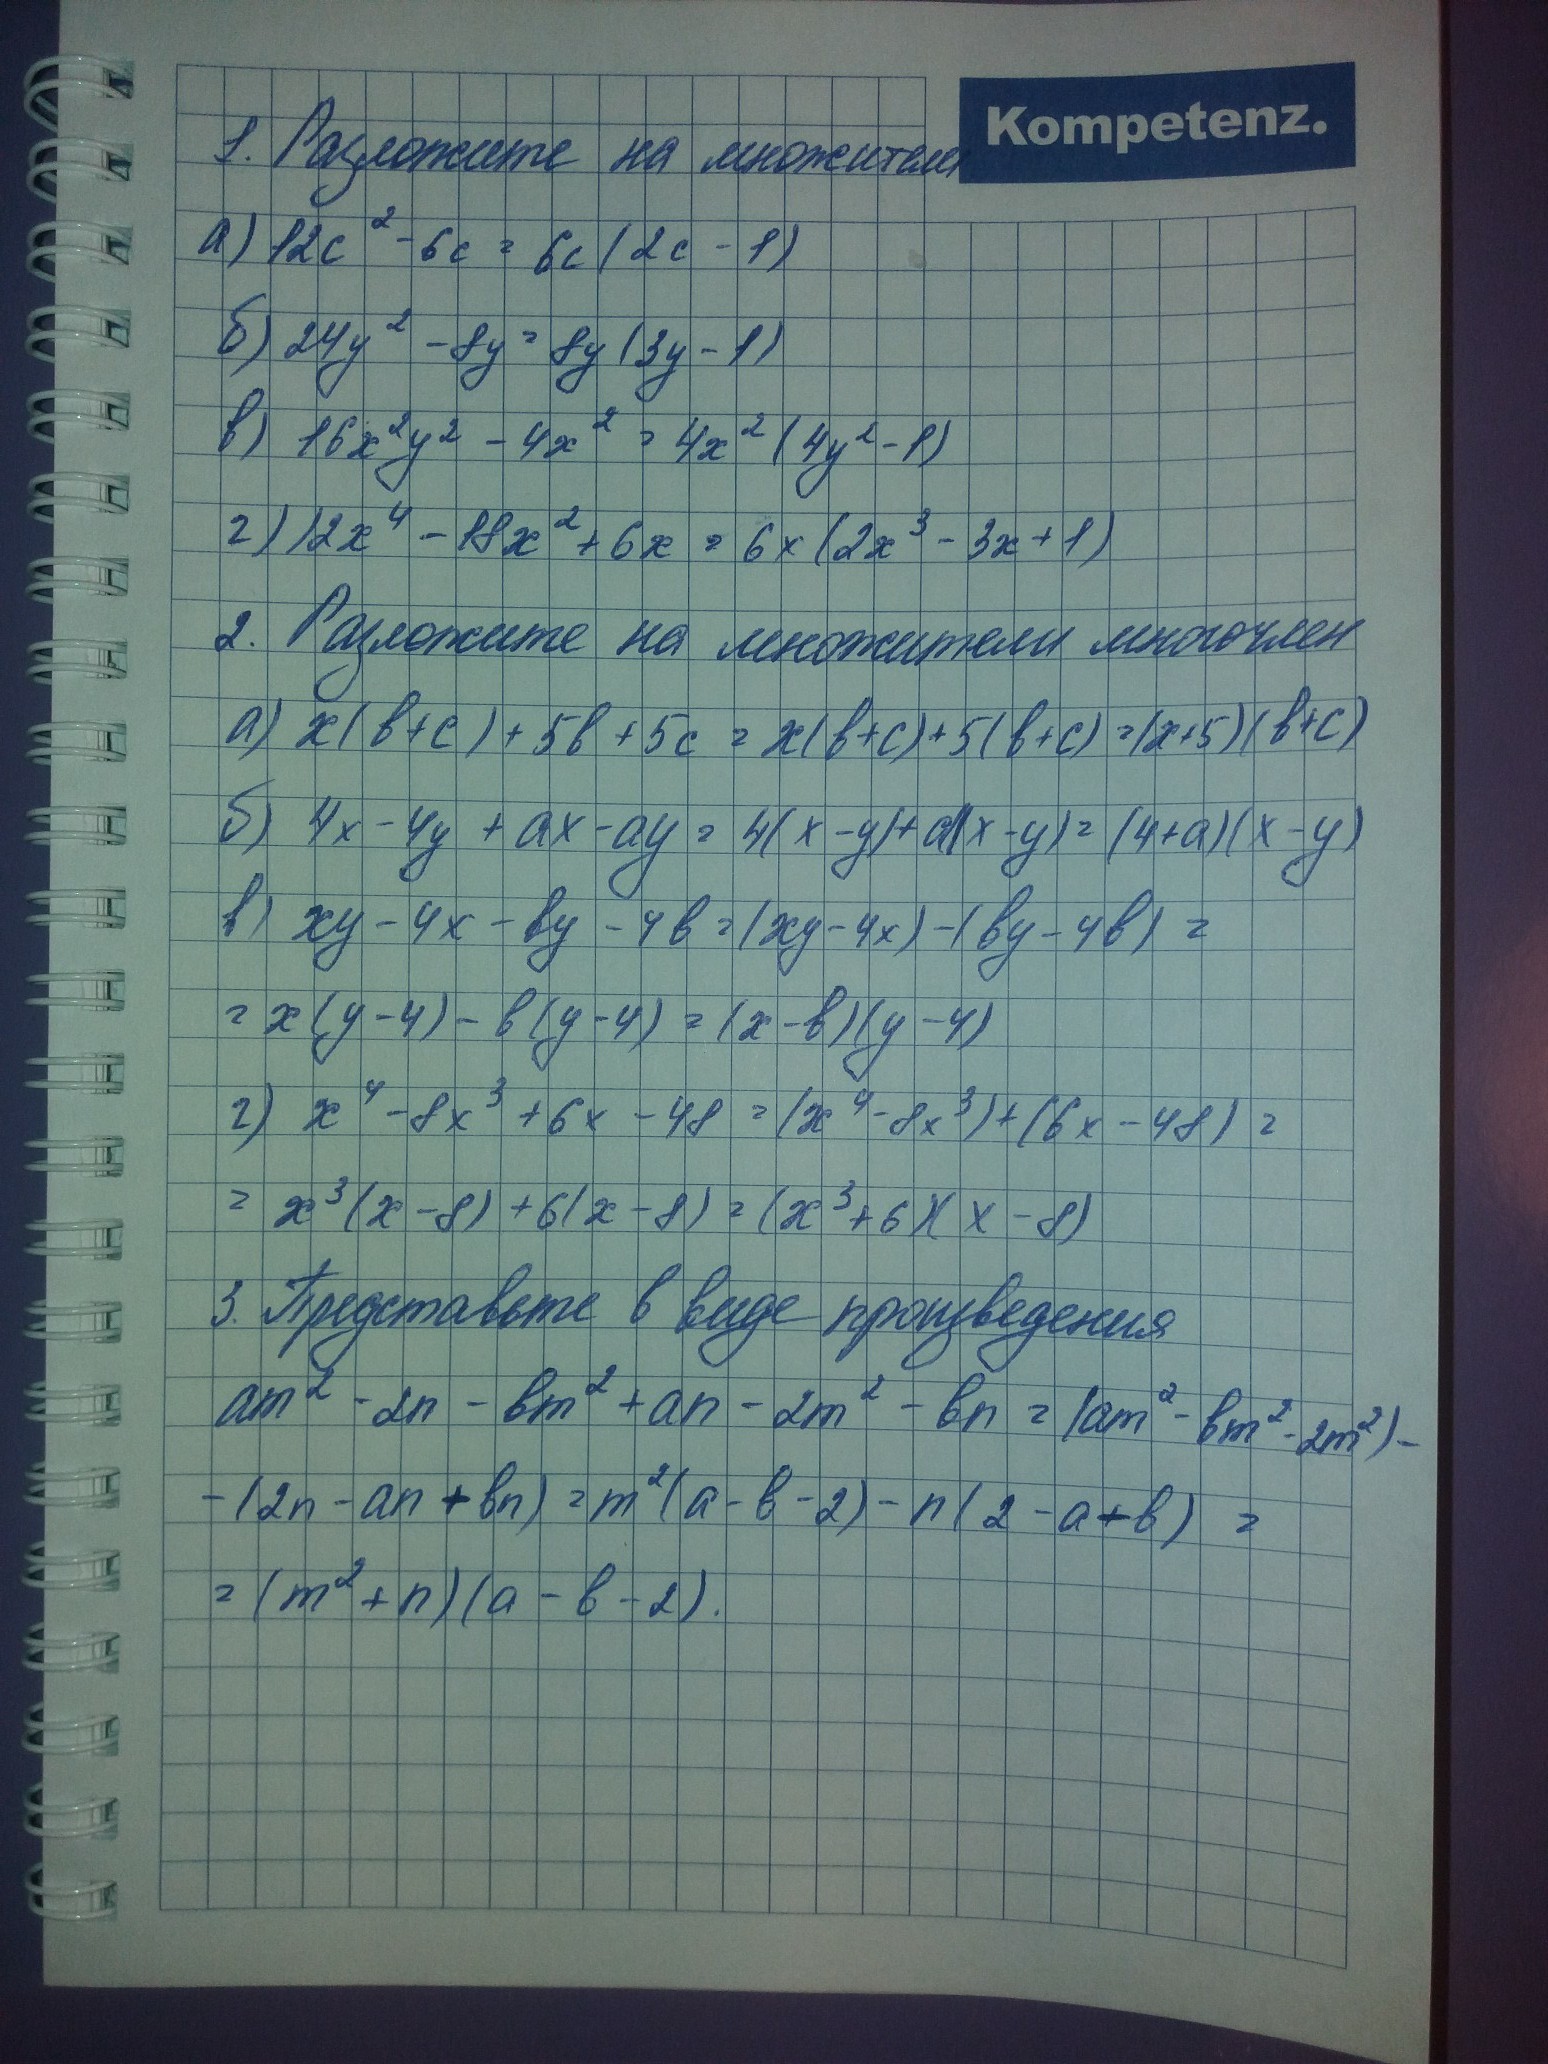 Kompetenz.
1. Разложите на множители
а) 12c² - 6c = 6c(2c - 1)
б) 24y² - 8y = 8y(3y - 1)
в) 16x²y² - 4x² = 4x²(4y² - 1)
г) 12x⁴ - 18x² + 6x = 6x(2x³ - 3x + 1)
2. Разложите на множители многочлен
а) x(в+c) + 5в + 5c = x(в+c) + 5(в+c) = (x+5)(в+c)
б) 4x - 4y + ax - ay = 4(x - y) + a(x - y) = (4+a)(x - y)
в) xy - 4x - вy - 4в = (xy - 4x) - (вy - 4в) =
= x(y - 4) - в(y - 4) = (x - в)(y - 4)
г) x⁴ - 8x³ + 6x - 48 = (x⁴ - 8x³) + (6x - 48) =
= x³(x - 8) + 6(x - 8) = (x³ + 6)(x - 8)
3. Представьте в виде произведения
am² - 2n - вm² + an - 2m² - вn = (am² - вm² - 2m²) -
- (2n - an + вn) = m²(a - в - 2) - n(2 - a + в) =
= (m² + n)(a - в - 2).